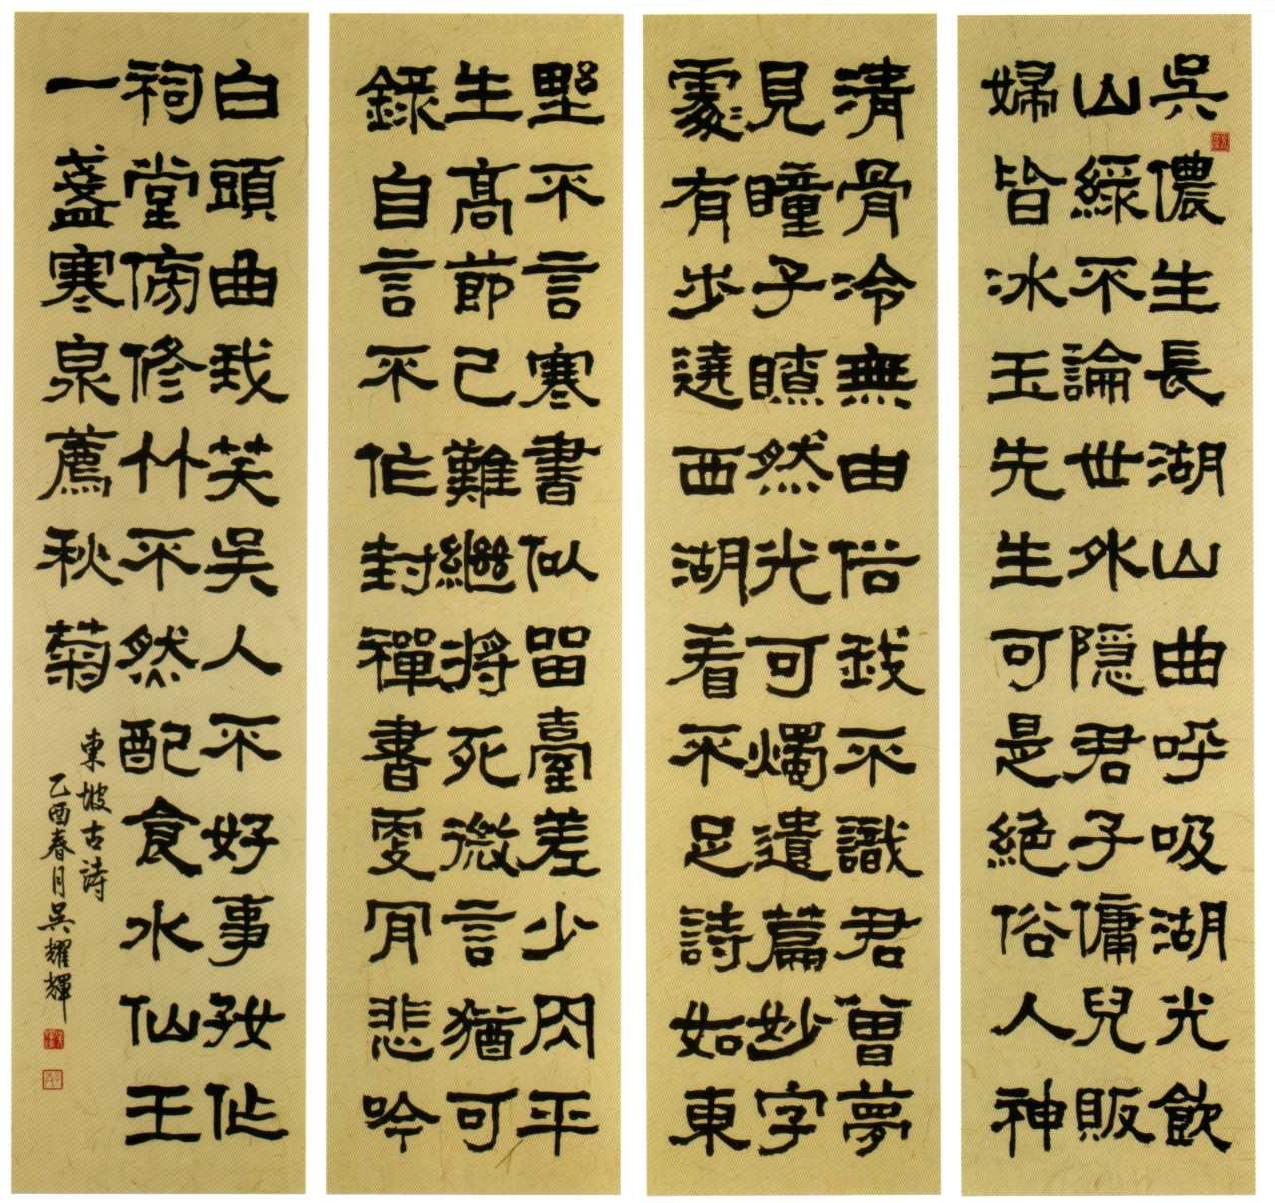 吳儂生長湖山曲呼吸湖光飲
山綠不論世外隱君子傭兒販
婦皆冰玉先生可是絕俗人神
清骨冷無由俗我不識君曾夢
見瞳子瞭然光可燭遺篇妙字
處有步遶西湖看不足詩如東
野不言寒書似留臺差少肉平
生高節已難繼將死微言猶可
錄自言不作封禪書更肯悲吟
白頭曲我笑吳人不好事好作
祠堂傍修竹不然配食水仙王
一盞寒泉薦秋菊
東坡古詩
乙酉春月吳耀輝